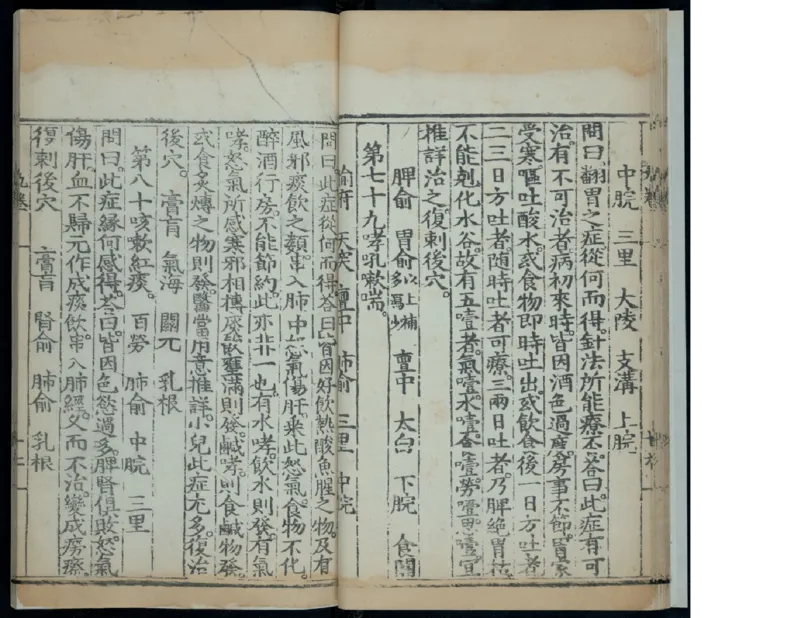 中脘 三里 大陵 支溝 上脘
問曰翻胃之症從何而得。針法所能療否。答曰此症有可
治有不可治者病初來時。皆因酒色過度。房事不節。胃家
受寒嘔吐酸水。或食物即時吐出或飲食後一日方吐者
二三日方吐者隨時吐者可療。三兩日吐者乃脾絕胃枯。
不能剋化水谷。故有五噎者。氣噎。水噎。食噎。勞噎思噎。宜
推詳治之。復刺後穴。
脾俞 胃俞以上補多瀉少 膻中 太白 下脘 食關
第七十九哮吼嗽喘。
俞府 天突 膻中 肺俞 三里 中脘
問曰此症從何而得答曰皆因好飲熱酸魚腥之物。及有
風邪痰飲之類。串入肺中怒氣傷肝。乘此怒氣食物不化。
醉酒行房。不能節約。此亦非一也。有水哮。飲水則發。有氣
哮。怒氣所感寒邪相搏痰飲壅滿則發。鹹哮。則食鹹物發。
或食炙煿之物則發。醫當用意推詳。小兒此症尤多。復治
後穴。 膏肓 氣海 關元 乳根
第八十咳嗽紅痰。 百勞 肺俞 中脘 三里
問曰。此症緣何感得。答曰皆因色慾過多。脾腎俱敗。怒氣
傷肝。血不歸元作成痰飲。串入肺經。久而不治。變成癆瘵。
復刺後穴 膏肓 腎俞 肺俞 乳根